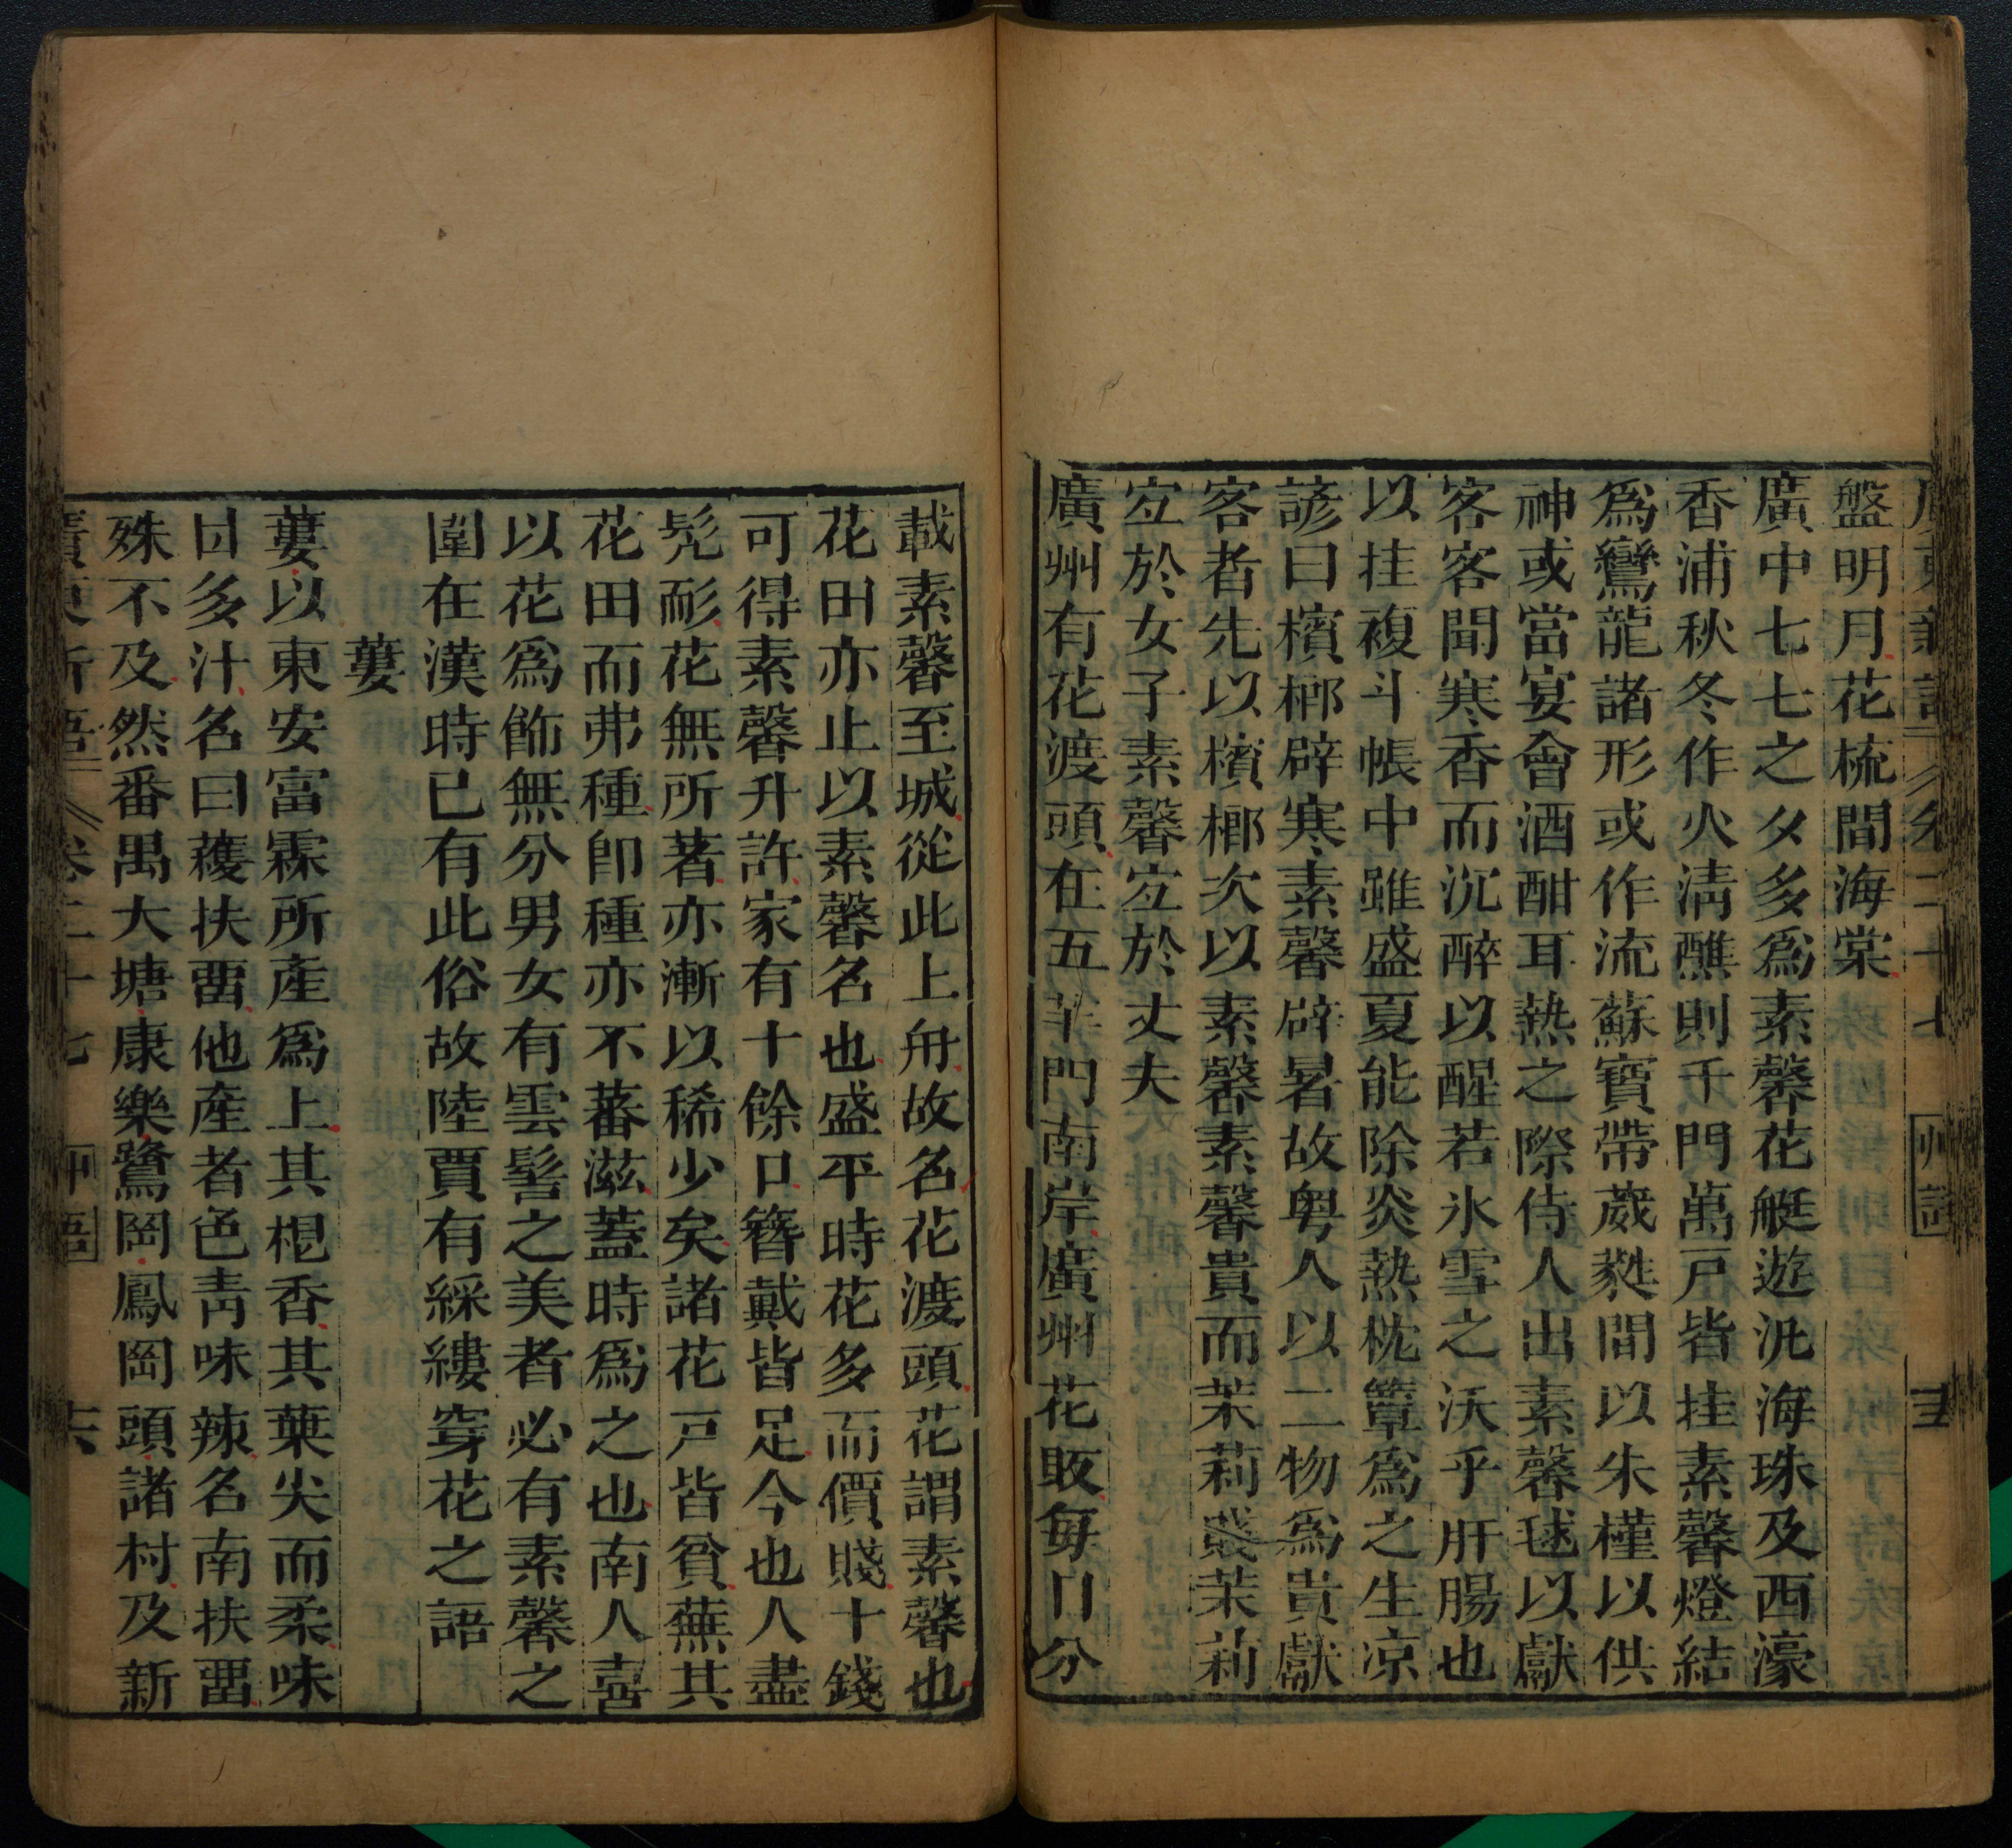 盤明月花梳間海棠
廣中七七之夕多爲素馨花艇遊汎海珠及西濠
香浦秋冬作火淸醮則千門萬戸皆挂素馨燈結
爲鸞龍諸形或作流蘇寶帶葳蕤間以朱槿以供
神或當宴會酒酣耳熱之際侍人出素馨毬以獻
客客聞寒香而沉醉以醒若氷雪之沃乎肝腸也
以挂複斗帳中雖盛夏能除炎熱枕簟爲之生凉
諺曰檳榔辟寒素馨辟暑故粤人以二物爲貴獻
客者先以檳榔次以素馨素馨貴而茉莉賤茉莉
宐於女子素馨宐於丈夫
廣州有花渡頭在五羊門南岸廣州花販每日分
載素馨至城從此上舟故名花渡頭花謂素馨也
花田亦止以素馨名也盛平時花多而價賤十錢
可得素馨升許家有十餘口簪戴皆足今也人盡
髠耏花無所著亦漸以稀少矣諸花戸皆貧蕪其
花田而弗種卽種亦不蕃滋蓋時爲之也南人喜
以花爲飾無分男女有雲髻之美者必有素馨之
圍在漢時已有此俗故陸賈有綵縷穿花之語
蔞
蔞以東安富霖所產爲上其根香其葉尖而柔味
甘多汁名曰穫扶畱他產者色靑味辣名南扶畱
殊不及然番禺大塘康樂鷺岡鳳岡頭諸村及新
廣東新語
卷二十七
艸語
六